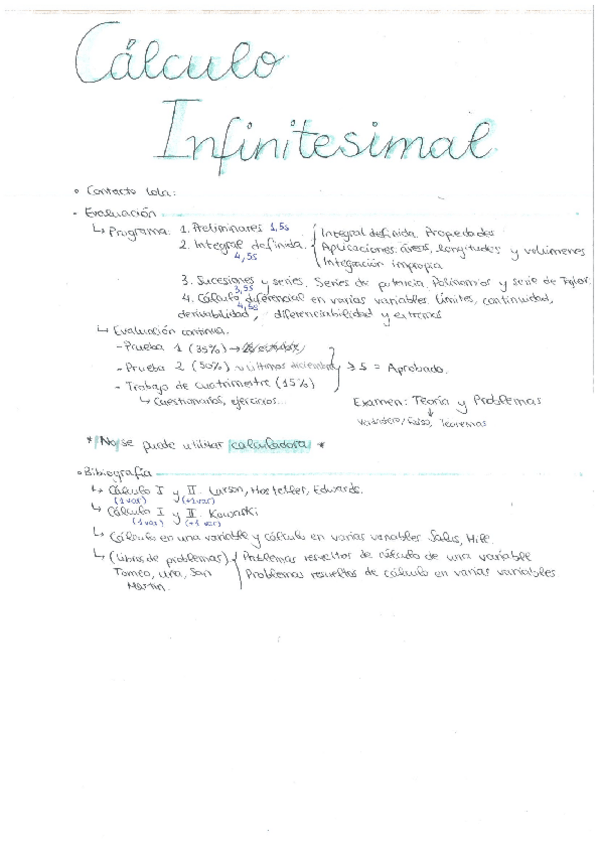 Cálculo
Infinitesimal
• Contacto Lola:
• Evaluación
↳ Programa: 1. Preliminares 1,5s
2. Integral definida. { Integral definida. Propiedades
4,5s Aplicaciones: áreas, longitudes y volúmenes
Integración impropia
3. Sucesiones y series. Series de potencia. Polinomios y serie de Taylor.
3,5s
4. Cálculo diferencial en varias variables. Límites, continuidad,
4,5s
derivabilidad, diferenciabilidad y extremos
↳ Evaluación continua.
- Prueba 1 (35%) →
- Prueba 2 (50%) últimos diciembre } ≥ 5 = Aprobado.
- Trabajo de cuatrimestre (15%)
↳ Cuestionarios, ejercicios... Examen: Teoría y Problemas
↓
Verdadero/Falso, Teoremas
* No se puede utilizar calculadora *
• Bibiografía
↳ Cálculo I y II. Larson, Hostelter, Edwards.
(1 var) (+1 var)
↳ Cálculo I y II. Kowanski
(1 var) (+1 var)
↳ Cálculo en una variable y cálculo en varias variables. Salas, Hille.
↳ (Libros de problemas) { Problemas resueltos de cálculo de una variable
Tomeo, Uña, San Problemas resueltos de cálculo en varias variables
Martín.